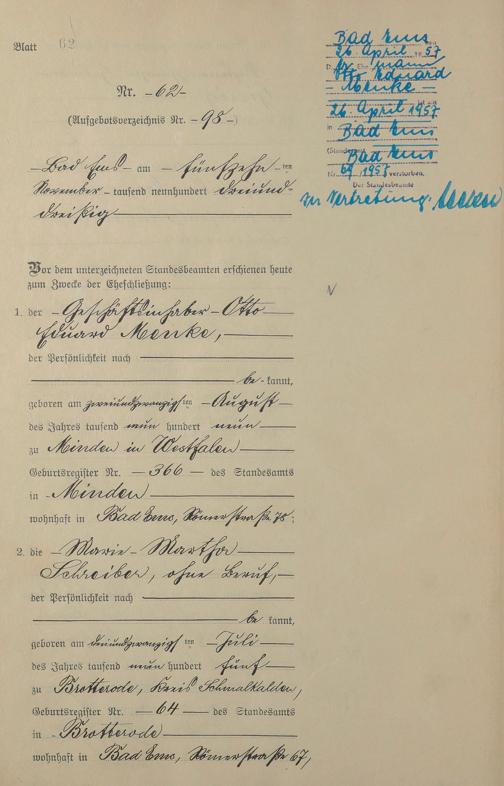 Blatt 62
Nr. -62-
(Aufgebotsverzeichnis Nr. -98-)
Bad Ems - am - fünfzehn - ten
November - tausend neunhundert dreiund-
dreißig
Vor dem unterzeichneten Standesbeamten erschienen heute
zum Zwecke der Eheschließung:
1. der - Geschäftsinhaber - Otto
Eduard Menke,
der Persönlichkeit nach
be kannt,
geboren am zweiundzwanzigsten - August
des Jahres tausend neun hundert neun
zu Minden in Westfalen
Geburtsregister Nr. - 366 - des Standesamts
in - Minden
wohnhaft in Bad Ems, Römerstraße 78;
2. die - Marie - Martha
Schreiber, ohne Beruf,
der Persönlichkeit nach
be kannt,
geboren am dreiundzwanzigsten - Juli
des Jahres tausend neun hundert fünf
zu Brotterode, Kreis Schmalkalden,
Geburtsregister Nr. - 64 - des Standesamts
in - Brotterode
wohnhaft in Bad Ems, Römerstraße 67,
Bad Ems
26. April 57
Otto Eduard
- Menke -
26. April 1957
in Bad Ems
Bad Ems
Nr. 1957 verstorben.
Der Standesbeamte
In Vertretung: